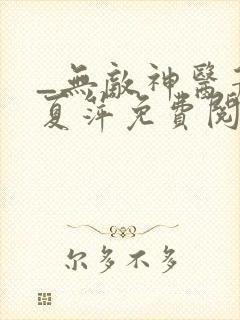 _無敵神醫
夏萍免費閱
尔多不多